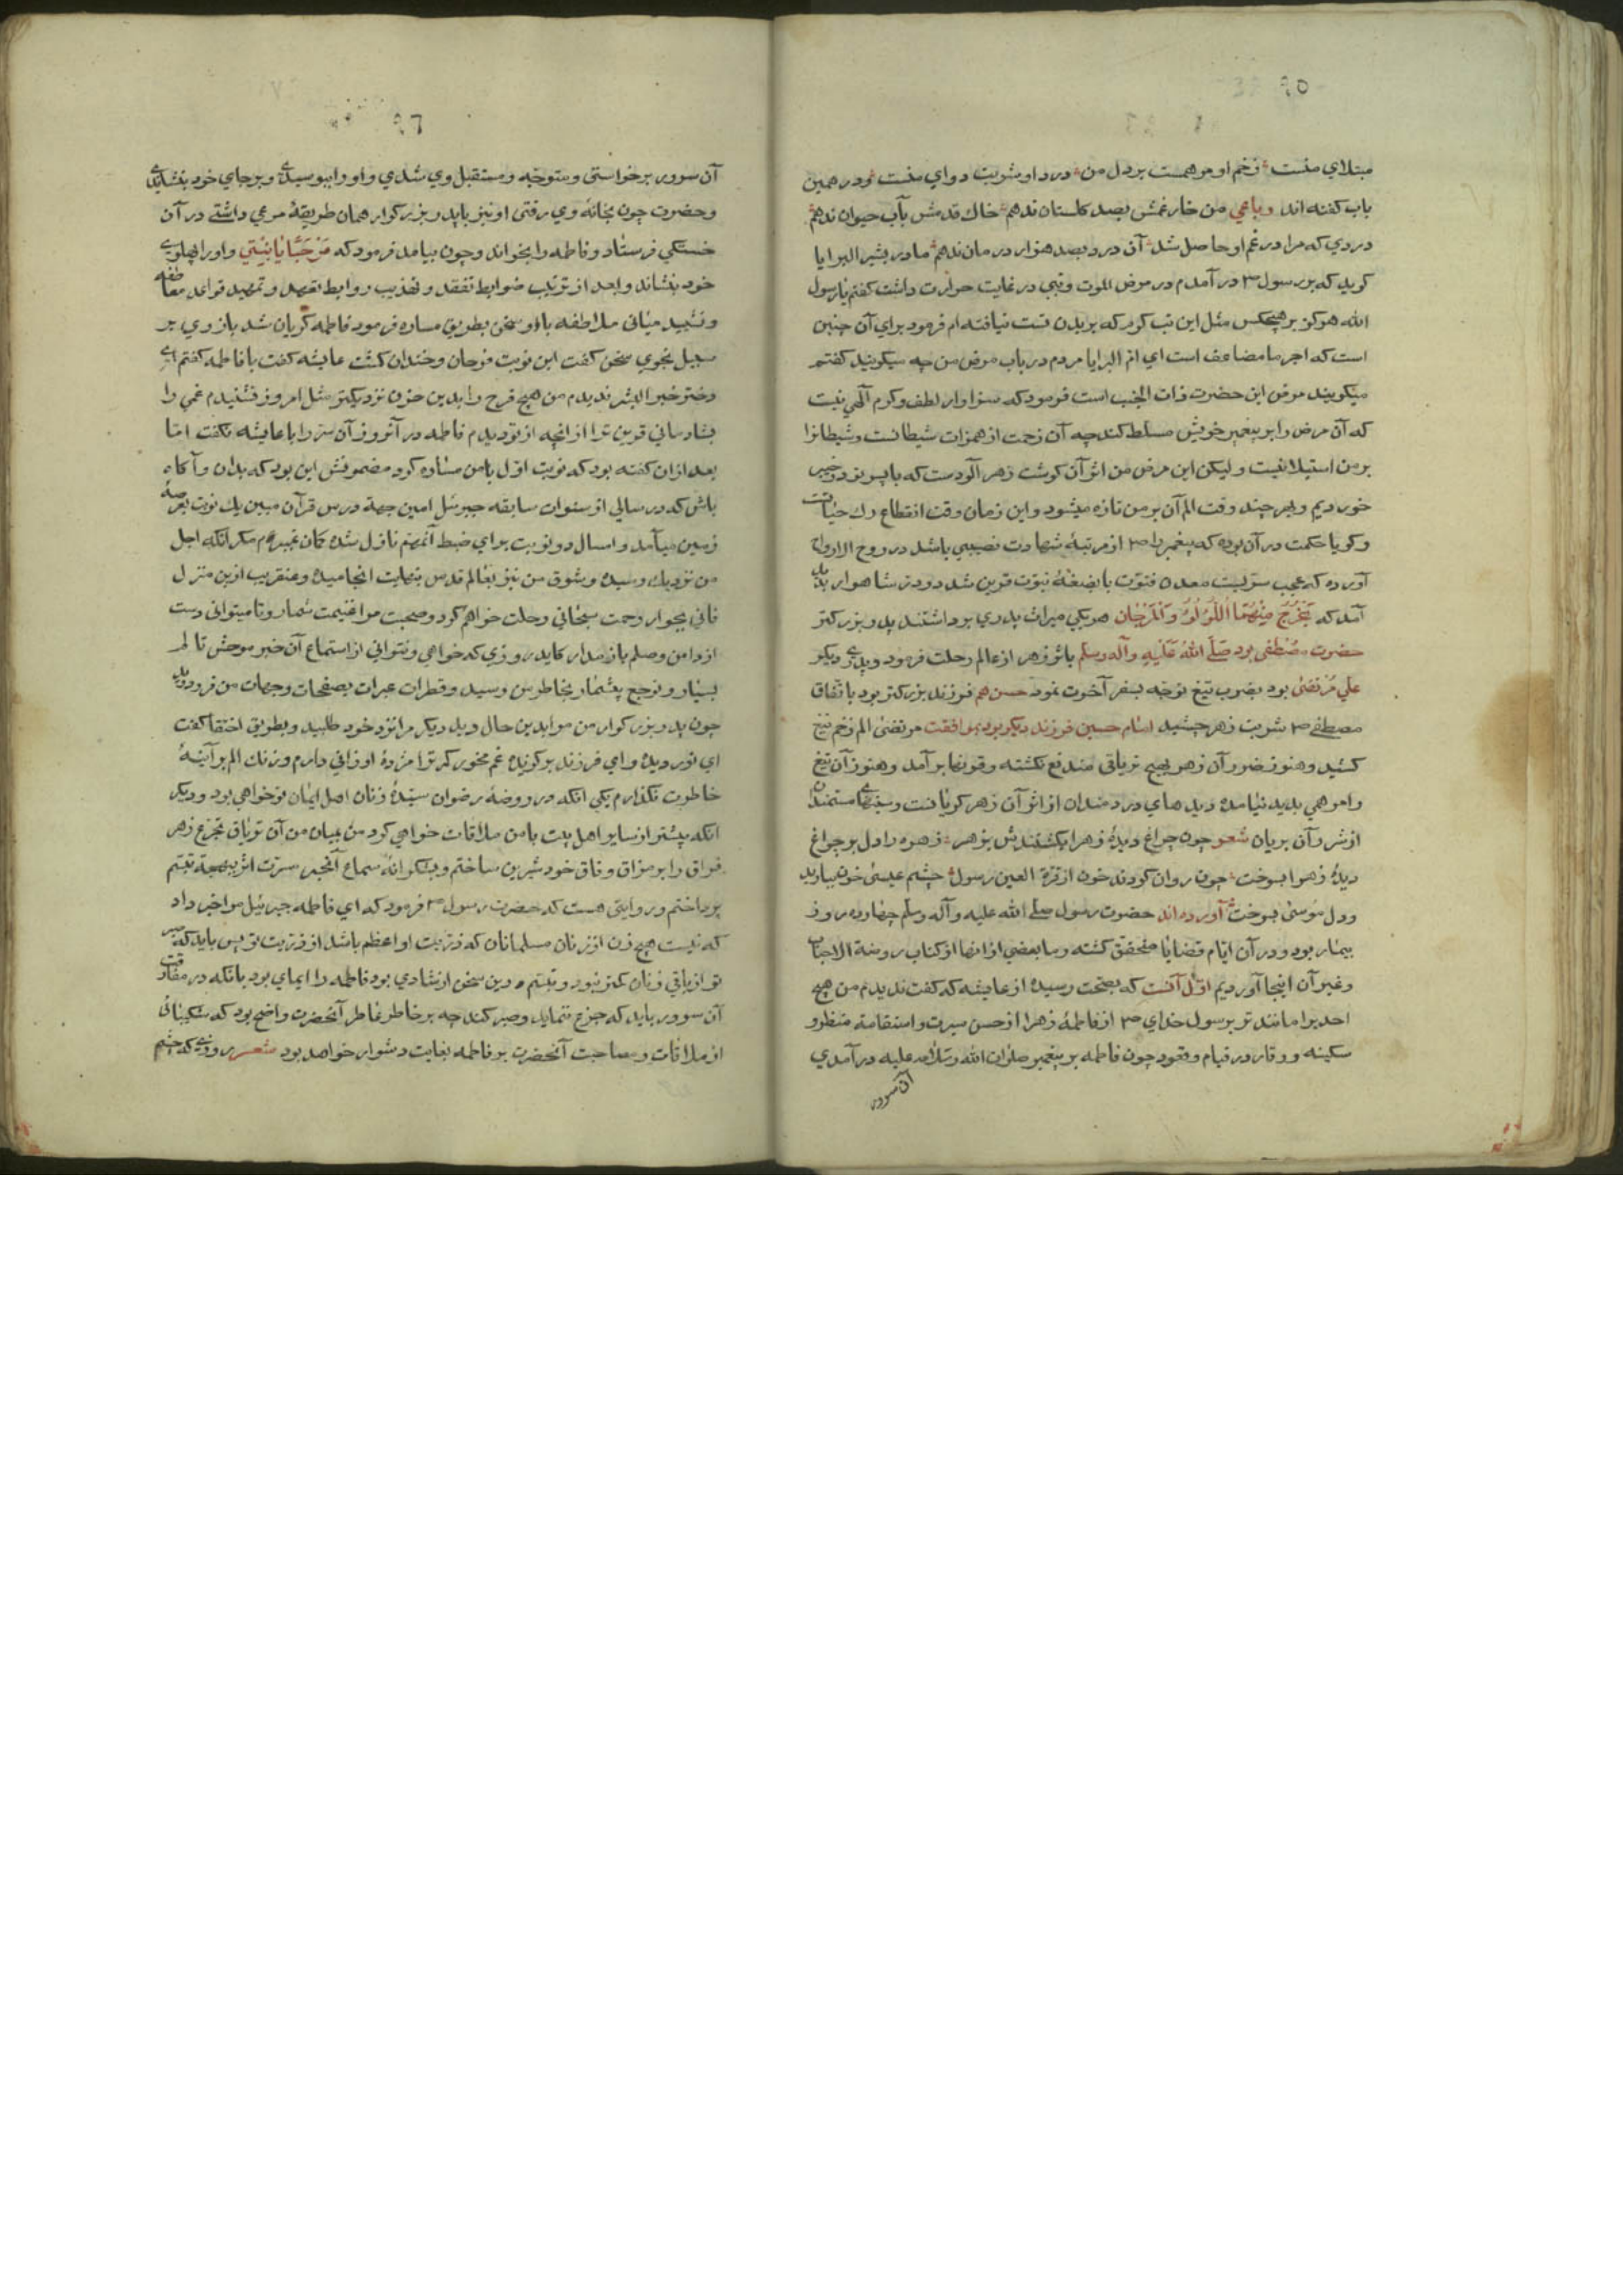 ٩٥
مبتلای منست زخم او مرهمست بردل من درد او شربت دوای منست و در همین
باب کفته اند رباعي من خار غمش بصد کلستان ندهم خاك قدمش بآب حیوان ندهم
دردي که مرا در غم او حاصل شد آن درد بصد هزار درمان ندهم مادر بشیر البرایا
کوید که بر رسول ص در آمدم در مرض الموت و تبي در غایت حرارت داشت کفتم یا رسول
الله هرکز بر هیچکس مثل این تب کرم که بر بدن تست نیافته ام فرمود برای آن چنین
است که اجر ما مضاعف است اي ام البرایا مردم در باب مرض من چه میکویند کفتم
میکویند مرض این حضرت ذات الجنب است فرمود که سزاوار لطف و کرم آلهي نیست
که آن مرض را بر پیغمبر خویش مسلط کند چه آن زحمت از همزات شیطانست و شیطانرا
بر من استیلا نیست و لیکن این مرض من اثر آن کوشت زهر آلودست که با پسر تو در خیبر
خوردیم و بهر چند وقت الم آن بر من تازه میشود و این زمان وقت انقطاع رك حیاتست
و کویا حکمت در آن بوده که پیغمبر را ص از مرتبهٔ شهادت نصیبي باشد در روح الارواح
آورده که عجب سریست معدن فتوت با بضعهٔ نبوت قرین شد دو در شاهوار پدید
آمد که یخرج منهما اللؤلؤ والمرجان هر یکي میراث پدري برداشتند پدر بزرکتر
حضرت مصطفی بود صلی الله علیه وآله وسلم باثر زهر از عالم رحلت فرمود و پدری دیکر
علي مرتضی بود بضرب تیغ توجه بسفر آخرت نمود حسن هم فرزند بزرکتر بود باتفاق
مصطفی ص شربت زهر چشید امام حسین فرزند دیکر بود بموافقت مرتضی الم زخم تیغ
کشید و هنوز ضرر آن زهر بهیچ تریاقي مندفع نکشته و قرنها بر آمد و هنوز آن تیغ
را مرهمي پدید نیامده دیدهاي دردمندان از اثر آن زهر کریانست و سینهای مستمندان
از شرر آن بریان شعر چون چراغ دیدهٔ زهرا بکشتندش بزهر زهره را دل بر چراغ
دیدهٔ زهرا بسوخت چون روان کردند خون از قرة العین رسول چشم عیسی خون ببارید
ودل موسی بسوخت آورده اند حضرت رسول صلی الله علیه و آله وسلم چهارده روز
بیمار بود و در آن ایام قضایا متحقق کشته و ما بعضي از انها از کتاب روضة الاحباب
و غیر آن اینجا آوردیم اول آنست که بصحت رسیده از عایشه که کفت ندیدم من هیچ
احدیرا مانند تر برسول خداي ص از فاطمهٔ زهرا از حسن سیرت و استقامة منظر و
سکینه و وقار در قیام و قعود چون فاطمه بر پیغمبر صلوات الله وسلامه علیه در آمدي
آن سرور
٩٦
آن سرور برخواستی و متوجه و مستقبل وي شدي و او را ببوسیدی و بر جاي خود بنشاندی
و حضرت چون بخانهٔ وي رفتی او نیز با پدر بزرکوار همان طریقهٔ مرعي داشتی در آن
خستکي فرستاد و فاطمه را بخواند و چون بیامد فرمود که مرحبا یا بنیتي و او را بپهلوی
خود بنشاند و بعد از ترتیب ضوابط تفقد و تهذیب روابط تعهد و تمهید قواعد معاطفه
و تشیید مباني ملاطفه با او سخن بطریق مساره فرمود فاطمه کریان شد باز وي بر
سبیل نجوي سخن کفت این نوبت فرحان و خندان کشت عایشه کفت با فاطمه کفتم ای
دختر خیر البشر ندیدم من هیچ فرح را بدین حزن نزدیکتر مثل امروز و نشنیدم غمي را
بشادماني قرین تر از انچه از تو دیدم فاطمه در آنروز آن سر را با عایشه نکفت اما
بعد از ان کفته بود که نوبت اول با من مساره کرد مضمونش این بود که بدان و آکاه
باش که در سالي از سنوات سابقه جبرئیل امین جهة درس قرآن مبین یك نوبت بعرصهٔ
زمین میآمد و امسال دو نوبت براي ضبط آنهم نازل شده کمان نمیبرم مکر انکه اجل
من نزدیك رسیده و شوق من نیز بعالم قدس بنهایت انجامیده و عنقریب ازین منزل
فاني بجوار رحمت سبحاني رحلت خواهم کرد و صحبت مرا غنیمت شمار و تا میتواني دست
از دامن وصلم باز مدار که آید روزي که خواهي و نتواني از استماع آن خبر موحش تالم
بسیار و توجع بیشمار بخاطر من رسید و قطرات عبرات بصفحات وجنات من فرو دوید
چون پدر بزرکوار من مرا بدین حال دید دیکر مرا نزد خود طلبید و بطریق اختفا کفت
اي نور دیده و اي فرزند برکزیده غم مخور که ترا مژدهٔ ارزاني دارم و زنك الم بر آینهٔ
خاطرت نکذارم یکي انکه در روضهٔ رضوان سیدهٔ زنان اهل ایمان تو خواهي بود و دیکر
انکه پیشتر از سایر اهل بیت با من ملاقات خواهي کرد من بیان من آن تریاق تجرع زهر
فراق را بر مذاق وفاق خود شیرین ساختم و بشکرانهٔ سماع آنخبر مسرت اثر ببهجة تبسم
پرداختم و روایتی هست که حضرت رسول ص فرمود که اي فاطمه جبرئیل مرا خبر داد
که نیست هیچ زن از زنان مسلمانان که ذریت او اعظم باشد از ذریت تو پس باید که صبر
تو از باقي زنان کمتر نبود و تبسم درین سخن از شادي بود فاطمه را ایماي بود بانکه در مفارقت
آن سرور باید که جزع ننماید و صبر کند چه بر خاطر عاطر آنحضرت واضح بود که شکیبائي
از ملاقات و مصاحبت آنحضرت بر فاطمه بغایت دشوار خواهد بود شعر روزی که چشم